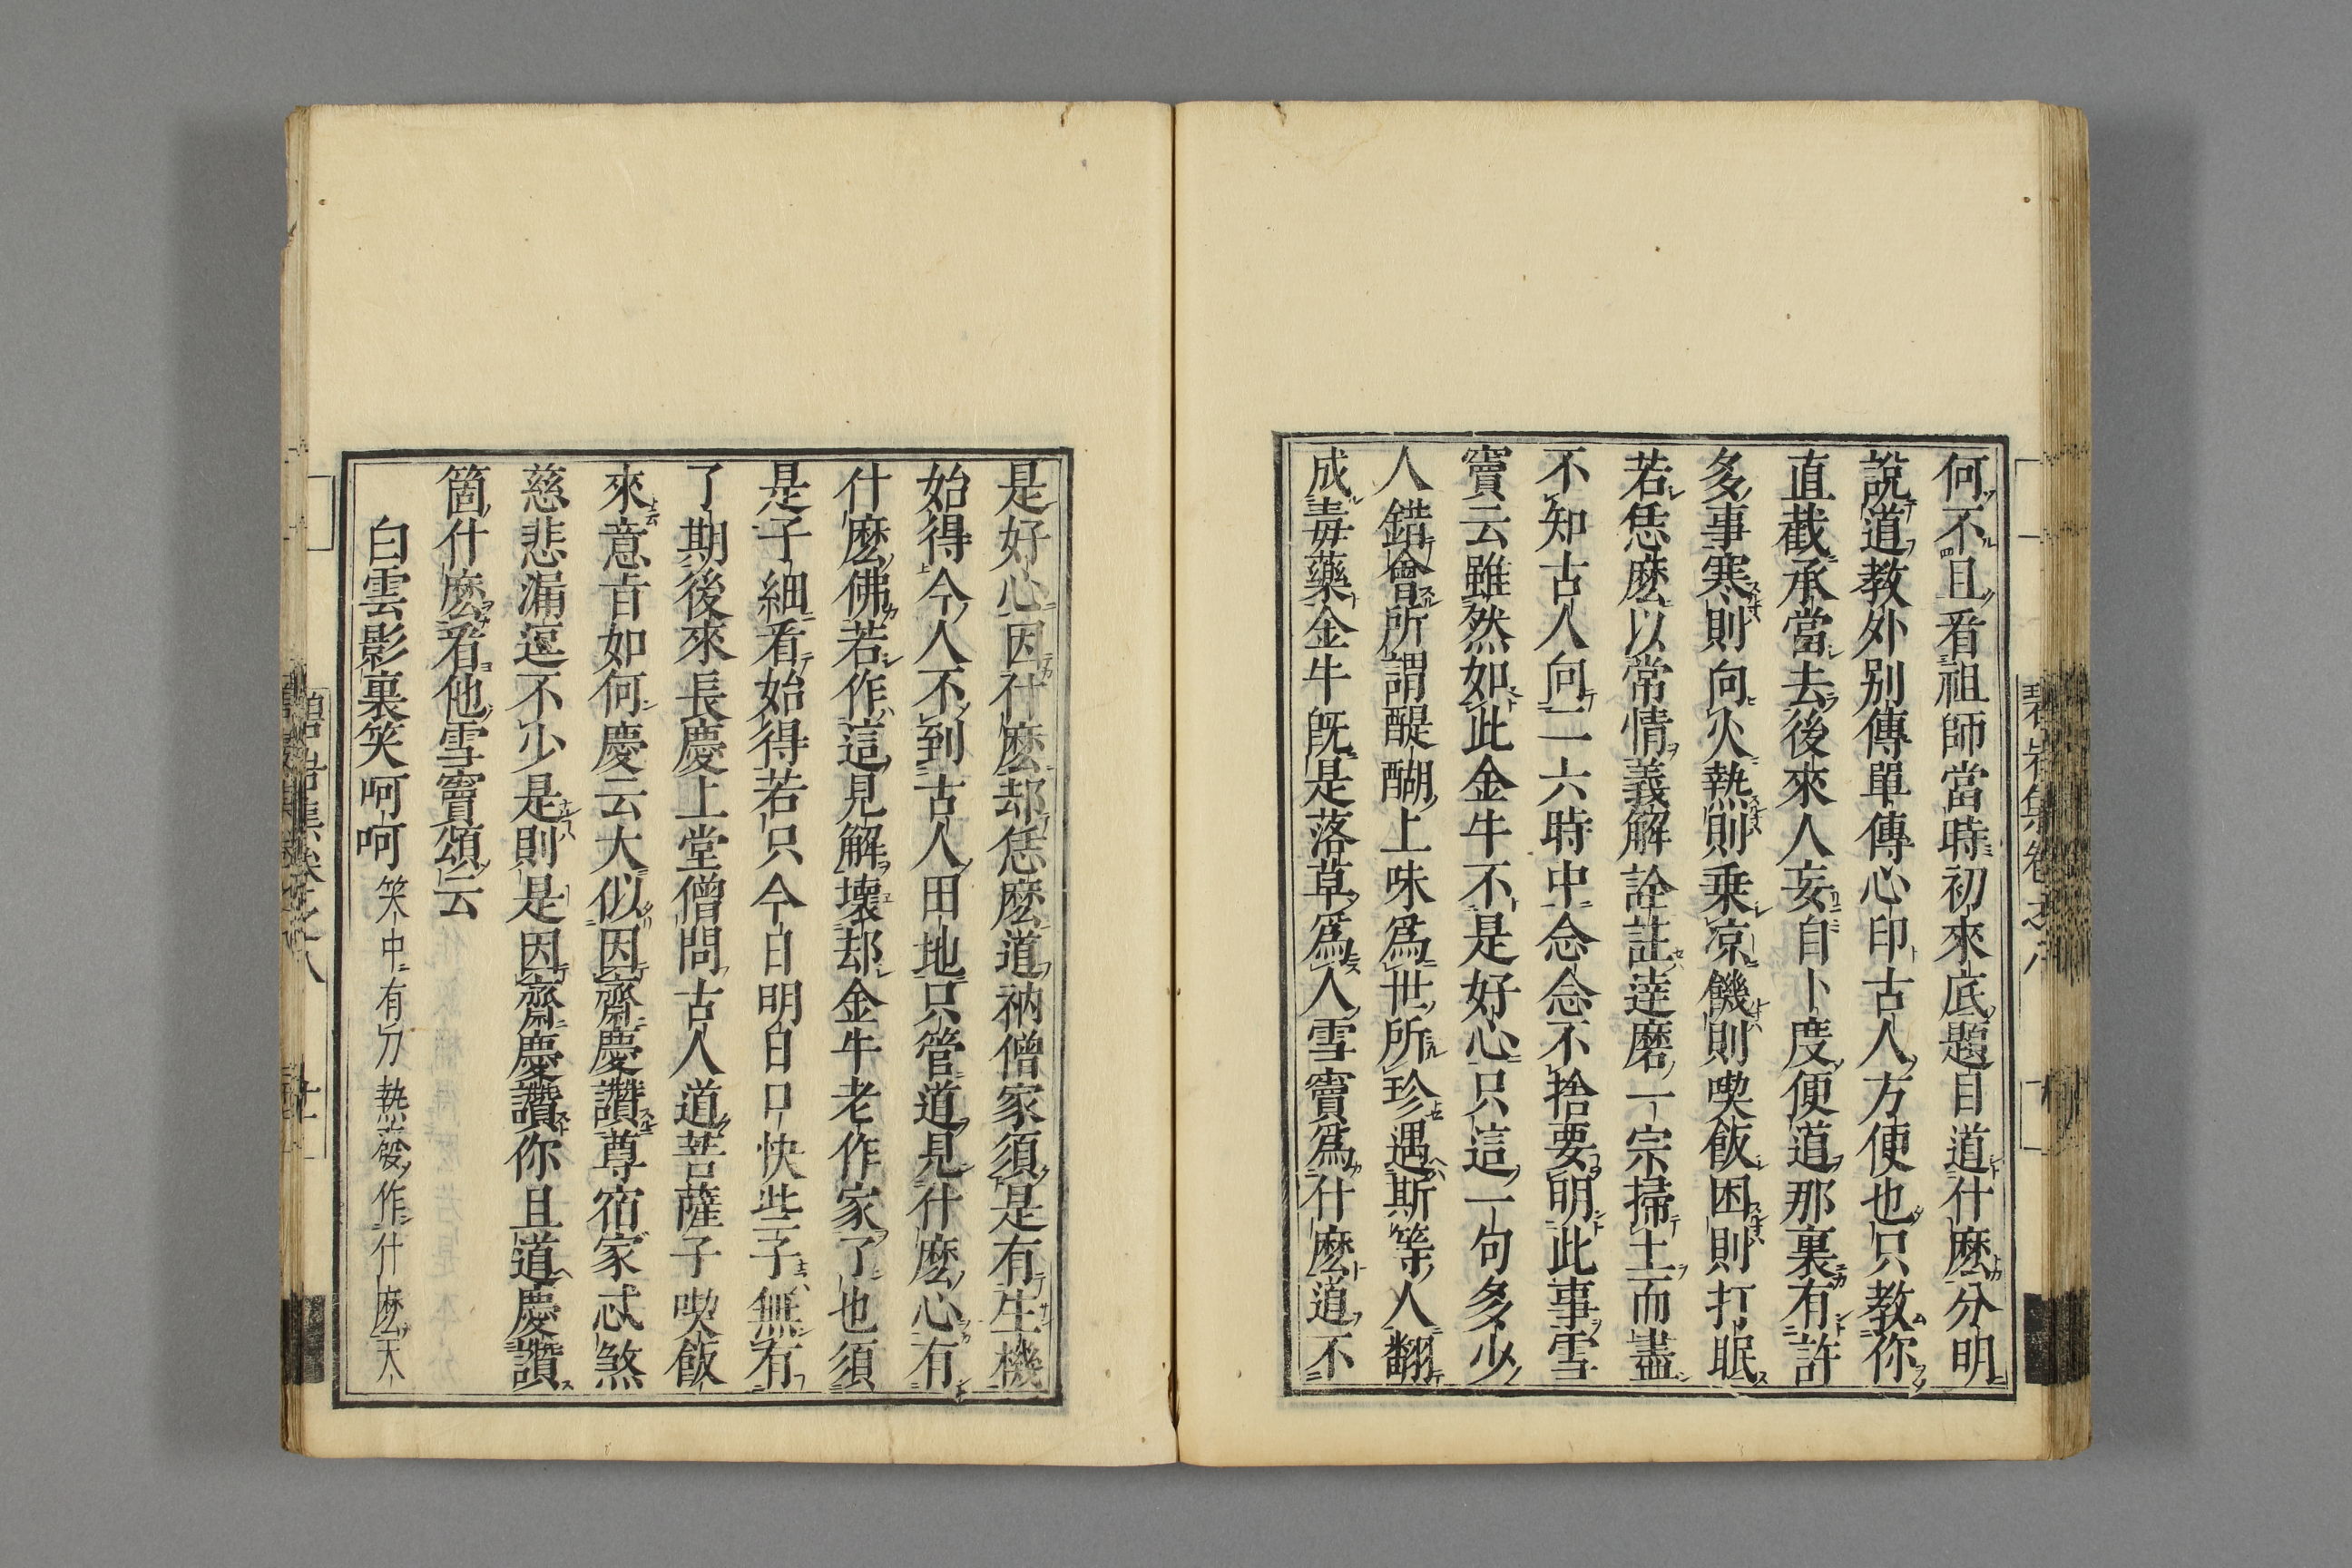 何不且看祖師當時初來底題目道什麽分明
說道教外別傳單傳心印古人方便也只教你
直截承當去後來人妄自卜度便道那裏有許
多事寒則向火熱則乘凉饑則喫飯困則打眠
若恁麽以常情義解詮註達磨一宗掃土而盡
不知古人向二六時中念念不捨要明此事雪
竇云雖然如此金牛不是好心只這一句多少
人錯會所謂醍醐上味爲世所珍遇斯等人翻
成毒藥金牛旣是落草爲人雪竇爲什麽道不
是好心因什麽却恁麽道衲僧家須是有生機
始得今人不到古人田地只管道見什麽心有
什麽佛若作這見解壞却金牛老作家了也須
是子細看始得若只今日明日口快些子無有
了期後來長慶上堂僧問古人道菩薩子喫飯
來意旨如何慶云大似因齋慶讚尊宿家忒煞
慈悲漏逗不少是則是因齋慶讚你且道慶讚
箇什麽看他雪竇頌云
白雲影裏笑呵呵 笑中有刀熱發作什麽天